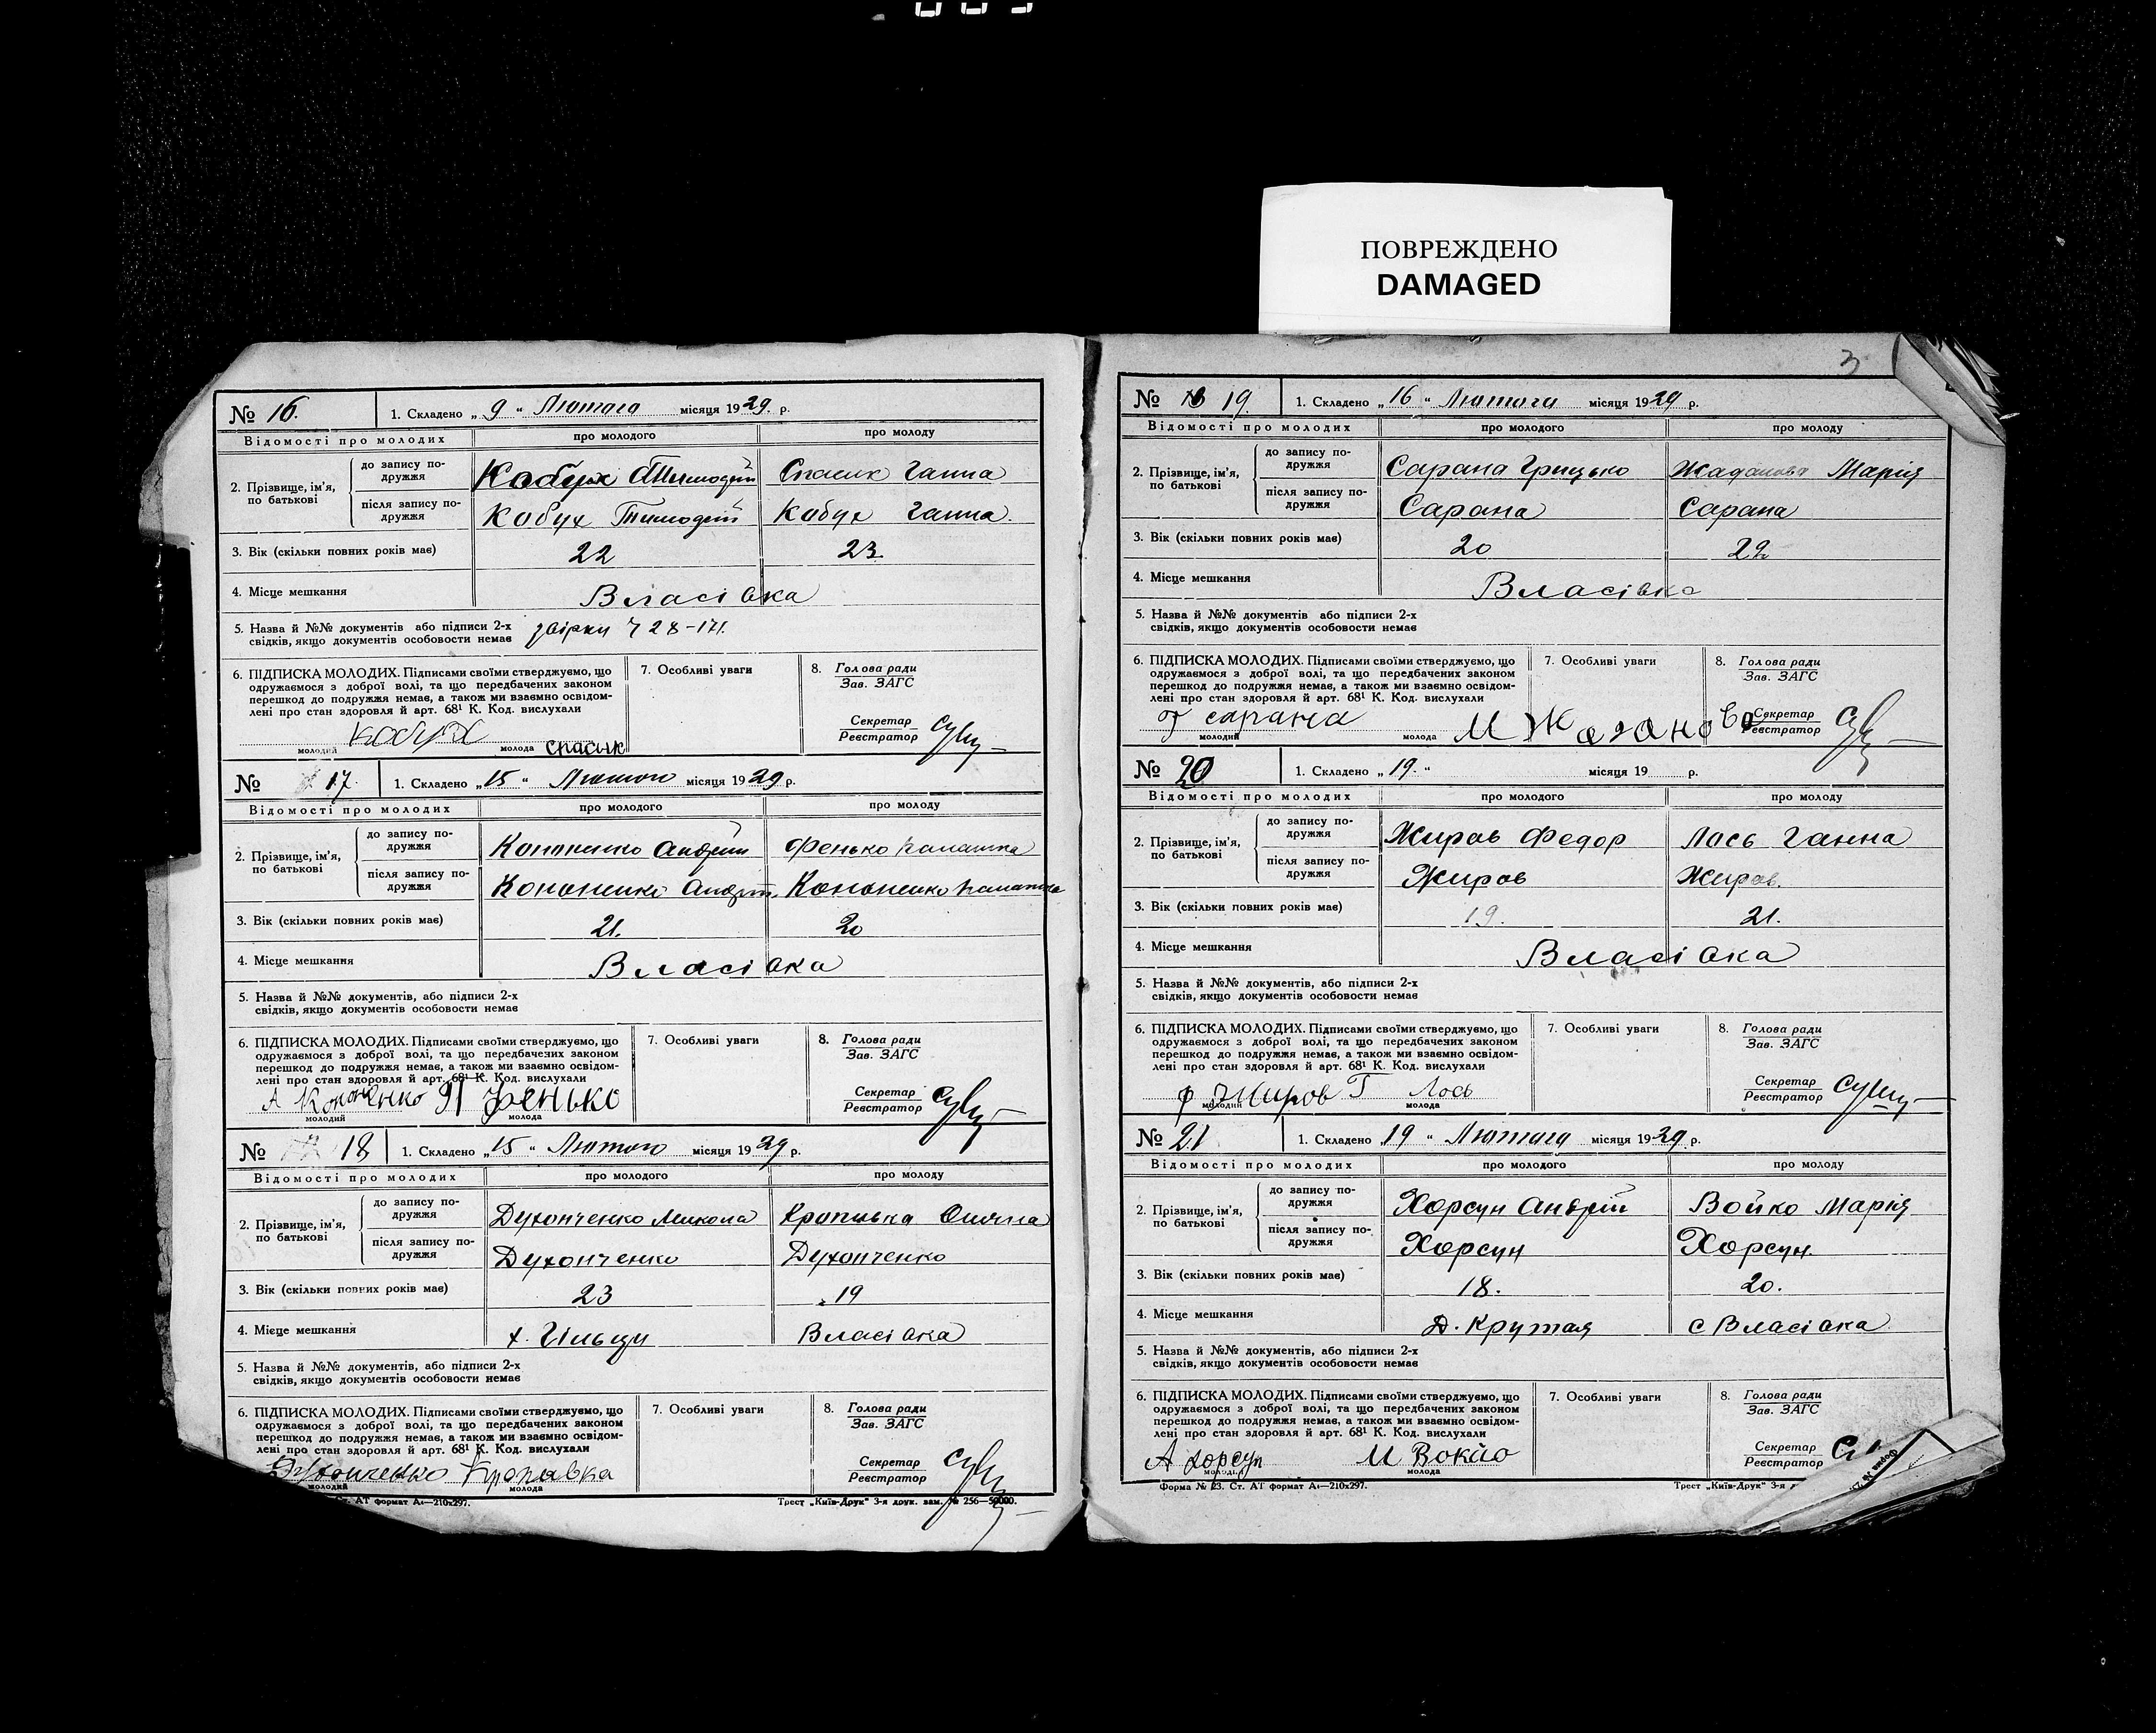 ПОВРЕЖДЕНО
DAMAGED
3
№ 16. 1. Складено „9“ Лютого місяця 1929. р.
Відомості про молодих про молодого про молоду
2. Прізвище, ім'я, по батькові
до запису подружжя Кобух Тимофій Спасик Ганна
після запису подружжя Кобух Тимофій Кобух Ганна.
3. Вік (скільки повних років має) 22 23.
4. Місце мешкання Власівка
5. Назва й №№ документів або підписи 2-х
свідків, якщо документів особовости немає
6. ПІДПИСКА МОЛОДИХ. Підписами своїми стверджуємо, що
одружаємося з доброї волі, та що передбачених законом
перешкод до подружжя немає, а також ми взаємно освідом-
лені про стан здоровля й арт. 68¹ К. Код. вислухали
Кобух Спасик
молодий молода
7. Особливі уваги
8. Голова ради
Зав. ЗАГС
Секретар
Реєстратор
№ 17. 1. Складено „15“ Лютого місяця 1929 р.
Відомості про молодих про молодого про молоду
2. Прізвище, ім'я, по батькові
до запису подружжя Кононенко Андрій Фенько Палашка
після запису подружжя Кононенко Андрій, Кононенко Палашка
3. Вік (скільки повних років має) 21. 20
4. Місце мешкання Власівка
5. Назва й №№ документів, або підписи 2-х
свідків, якщо документів особовости немає
6. ПІДПИСКА МОЛОДИХ. Підписами своїми стверджуємо, що
одружаємося з доброї волі, та що передбачених законом
перешкод до подружжя немає, а також ми взаємно освідом-
лені про стан здоровля й арт. 68¹ К. Код. вислухали
А Кононенко П Фенько
молодий молода
7. Особливі уваги
8. Голова ради
Зав. ЗАГС
Секретар
Реєстратор
№ 18 1. Складено „15“ Лютого місяця 1929 р.
Відомості про молодих про молодого про молоду
2. Прізвище, ім'я, по батькові
до запису подружжя Духонченко Микола Кропивка
після запису подружжя Духонченко Духонченко
3. Вік (скільки повних років має) 23 19
4. Місце мешкання х. Гільци Власівка
5. Назва й №№ документів, або підписи 2-х
свідків, якщо документів особовости немає
6. ПІДПИСКА МОЛОДИХ. Підписами своїми стверджуємо, що
одружаємося з доброї волі, та що передбачених законом
перешкод до подружжя немає, а також ми взаємно освідом-
лені про стан здоровля й арт. 68¹ К. Код. вислухали
Духонченко Кропивка
молодий молода
7. Особливі уваги
8. Голова ради
Зав. ЗАГС
Секретар
Реєстратор
Ст. АТ формат А₄—210х297. Трест „Київ-Друк“ 3-я друк. зам. № 256—50000.
№ 19. 1. Складено „16“ Лютого місяця 1929 р.
Відомості про молодих про молодого про молоду
2. Прізвище, ім'я, по батькові
до запису подружжя Сарана Грицько Жаданова Марія
після запису подружжя Сарана Сарана
3. Вік (скільки повних років має) 20 22
4. Місце мешкання Власівка
5. Назва й №№ документів або підписи 2-х
свідків, якщо документів особовости немає
6. ПІДПИСКА МОЛОДИХ. Підписами своїми стверджуємо, що
одружаємося з доброї волі, та що передбачених законом
перешкод до подружжя немає, а також ми взаємно освідом-
лені про стан здоровля й арт. 68¹ К. Код. вислухали
Г Сарана М Жаданова
молодий молода
7. Особливі уваги
8. Голова ради
Зав. ЗАГС
Секретар
Реєстратор
№ 20 1. Складено „19.“ місяця 19 р.
Відомості про молодих про молодого про молоду
2. Прізвище, ім'я, по батькові
до запису подружжя Жиров Федор Лось Ганна
після запису подружжя Жиров Жиров.
3. Вік (скільки повних років має) 19. 21.
4. Місце мешкання Власівка
5. Назва й №№ документів, або підписи 2-х
свідків, якщо документів особовости немає
6. ПІДПИСКА МОЛОДИХ. Підписами своїми стверджуємо, що
одружаємося з доброї волі, та що передбачених законом
перешкод до подружжя немає, а також ми взаємно освідом-
лені про стан здоровля й арт. 68¹ К. Код. вислухали
Ф Жиров Г Лось
молодий молода
7. Особливі уваги
8. Голова ради
Зав. ЗАГС
Секретар
Реєстратор
№ 21 1. Складено „19“ Лютого місяця 1929. р.
Відомості про молодих про молодого про молоду
2. Прізвище, ім'я, по батькові
до запису подружжя Хорсун Андрій Бойко Марія
після запису подружжя Хорсун Хорсун.
3. Вік (скільки повних років має) 18. 20.
4. Місце мешкання Д. Крутая с Власівка
5. Назва й №№ документів, або підписи 2-х
свідків, якщо документів особовости немає
6. ПІДПИСКА МОЛОДИХ. Підписами своїми стверджуємо, що
одружаємося з доброї волі, та що передбачених законом
перешкод до подружжя немає, а також ми взаємно освідом-
лені про стан здоровля й арт. 68¹ К. Код. вислухали
А Хорсун М Вокйо
молодий молода
7. Особливі уваги
8. Голова ради
Зав. ЗАГС
Секретар
Реєстратор
Форма № 23. Ст. АТ формат А₄—210х297. Трест „Київ-Друк“ 3-я